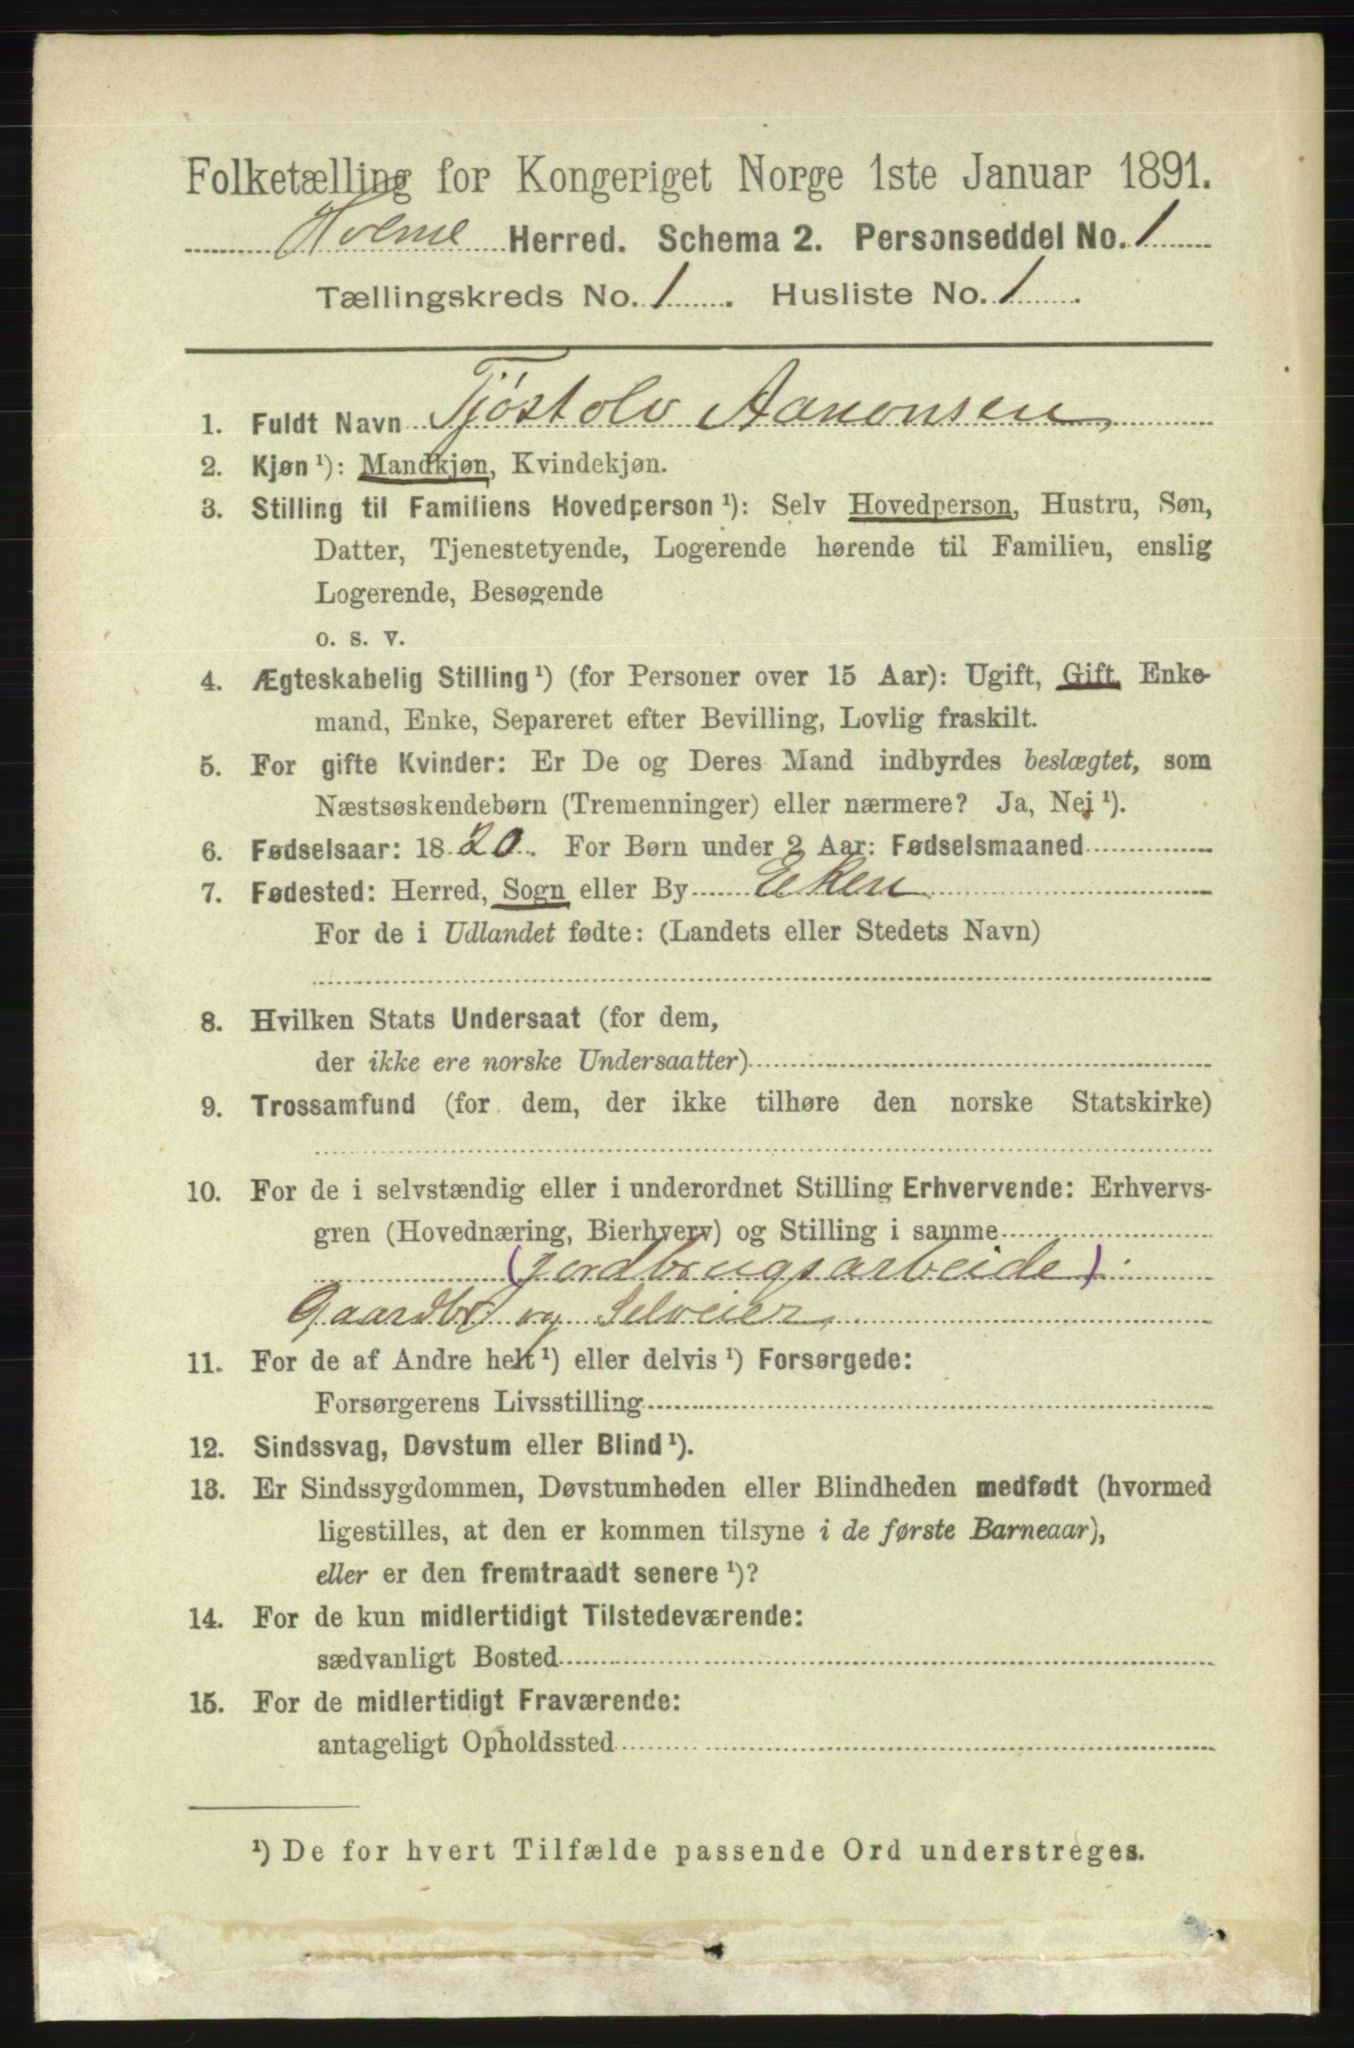 Folketælling for Kongeriget Norge 1ste Januar 1891.
Holme Herred. Schema 2. Personseddel No. 1
Tællingskreds No. 1. Husliste No. 1.
1. Fuldt Navn Tjøstolv Aanonsen
2. Kjøn ¹): Mandkjøn, Kvindekjøn.
3. Stilling til Familiens Hovedperson ¹): Selv Hovedperson, Hustru, Søn,
Datter, Tjenestetyende, Logerende hørende til Familien, enslig
Logerende, Besøgende
o. s. v.
4. Ægteskabelig Stilling ¹) (for Personer over 15 Aar): Ugift, Gift, Enke-
mand, Enke, Separeret efter Bevilling, Lovlig fraskilt.
5. For gifte Kvinder: Er De og Deres Mand indbyrdes beslægtet, som
Næstsøskendebørn (Tremenninger) eller nærmere? Ja, Nej ¹).
6. Fødselsaar: 1820. For Børn under 2 Aar: Fødselsmaaned
7. Fødested: Herred, Sogn eller By Eken
For de i Udlandet fødte: (Landets eller Stedets Navn)
8. Hvilken Stats Undersaat (for dem,
der ikke ere norske Undersaatter)
9. Trossamfund (for dem, der ikke tilhøre den norske Statskirke)
10. For de i selvstændig eller i underordnet Stilling Erhvervende: Erhvervs-
gren (Hovednæring, Bierhverv) og Stilling i samme
(jordbrugsarbeide)
Gaardbr og Selveier
11. For de af Andre helt ¹) eller delvis ¹) Forsørgede:
Forsørgerens Livsstilling
12. Sindssvag, Døvstum eller Blind ¹).
13. Er Sindssygdommen, Døvstumheden eller Blindheden medfødt (hvormed
ligestilles, at den er kommen tilsyne i de første Barneaar),
eller er den fremtraadt senere ¹)?
14. For de kun midlertidigt Tilstedeværende:
sædvanligt Bosted
15. For de midlertidigt Fraværende:
antageligt Opholdssted
¹) De for hvert Tilfælde passende Ord understreges.